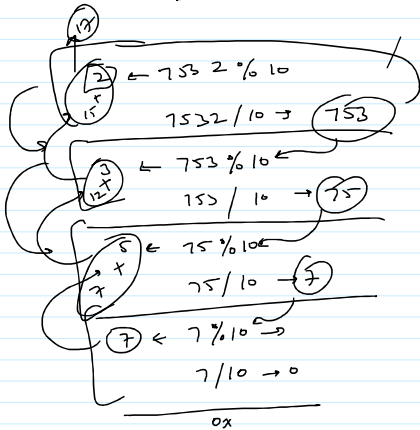 17
2 ← 7532 % 10
+
15
7532 / 10 → 753
3 ← 753 % 10
+
12
753 / 10 → 75
5 ← 75 % 10
+
7
75 / 10 → 7
7 ← 7 % 10 →
7 / 10 → 0
0x